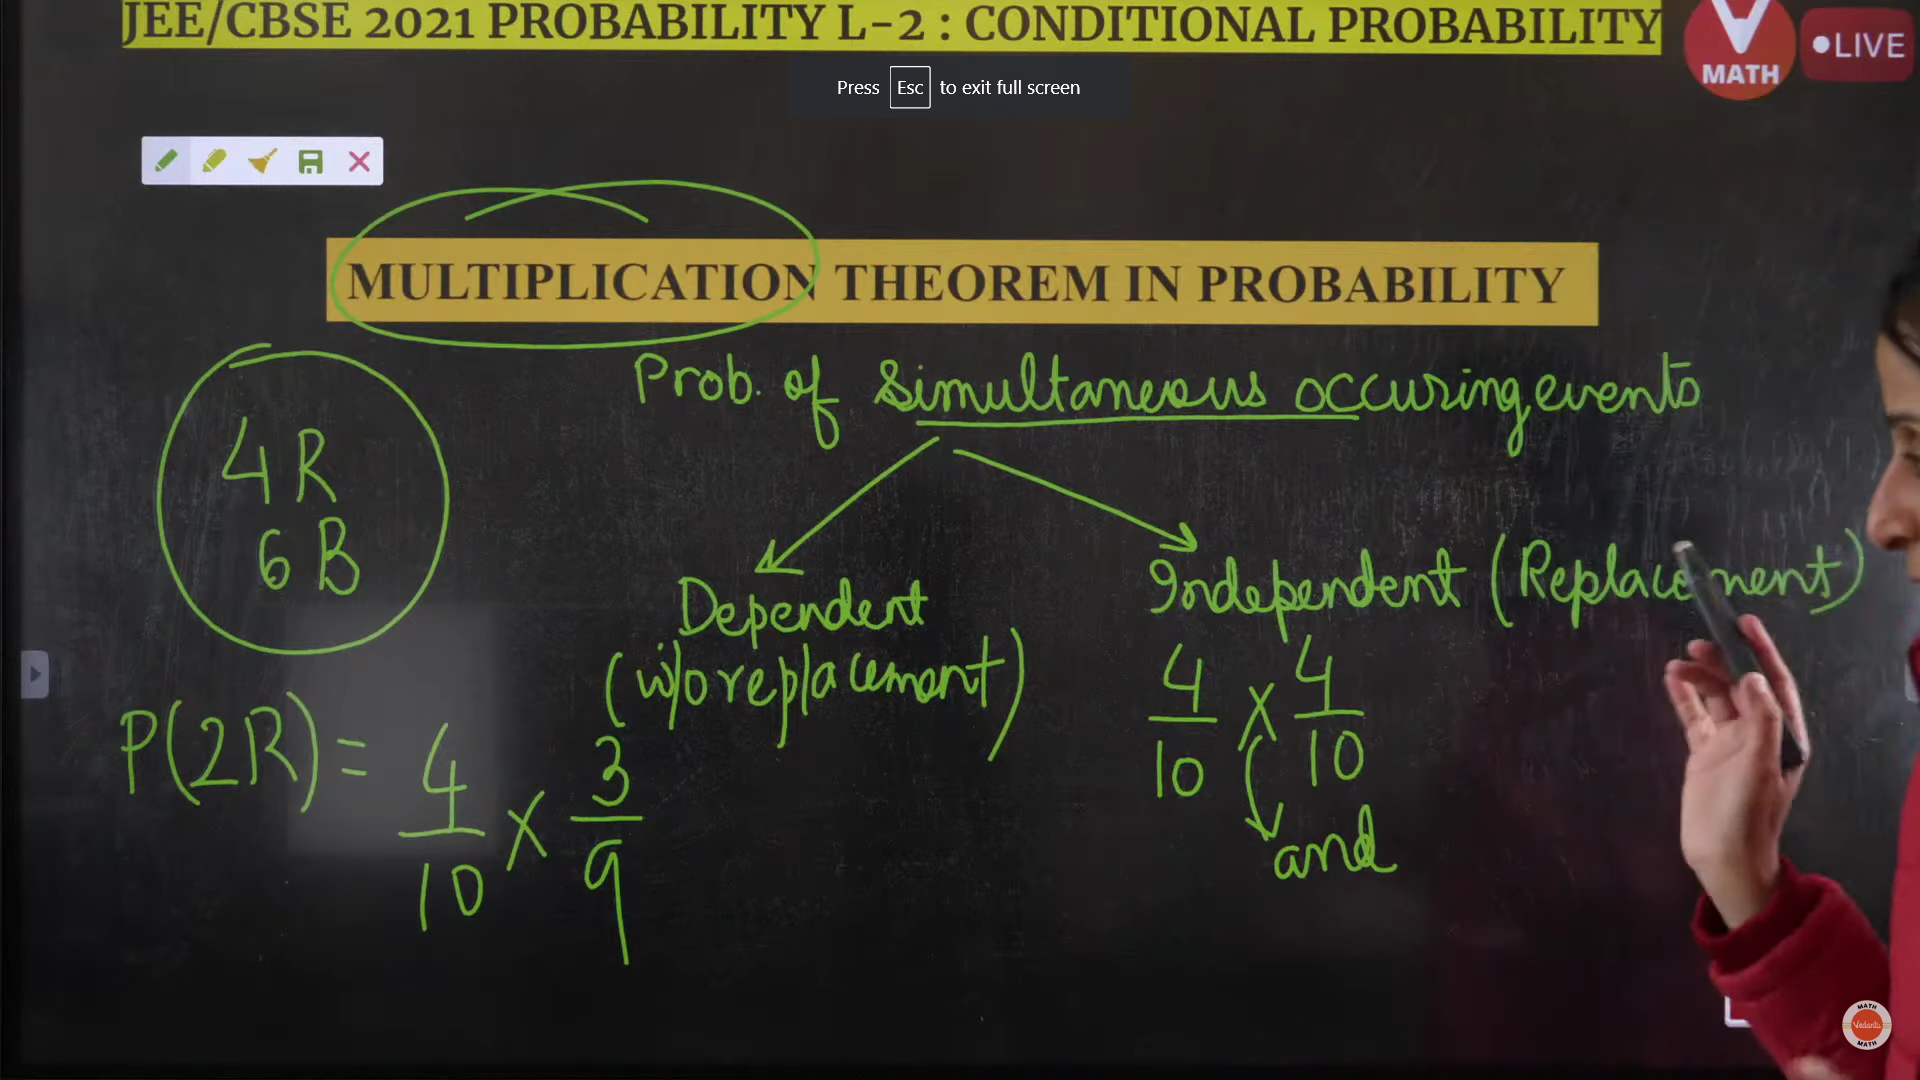 JEE/CBSE 2021 PROBABILITY L-2 : CONDITIONAL PROBABILITY
MATH
LIVE
Press Esc to exit full screen
MULTIPLICATION THEOREM IN PROBABILITY
Prob. of simultaneous occuring events
4 R
6 B
Dependent
(w/o replacement)
Independent (Replacement)
P(2R) = 4/10 × 3/9
4/10 × 4/10
and
MATH
Vedantu
MATH